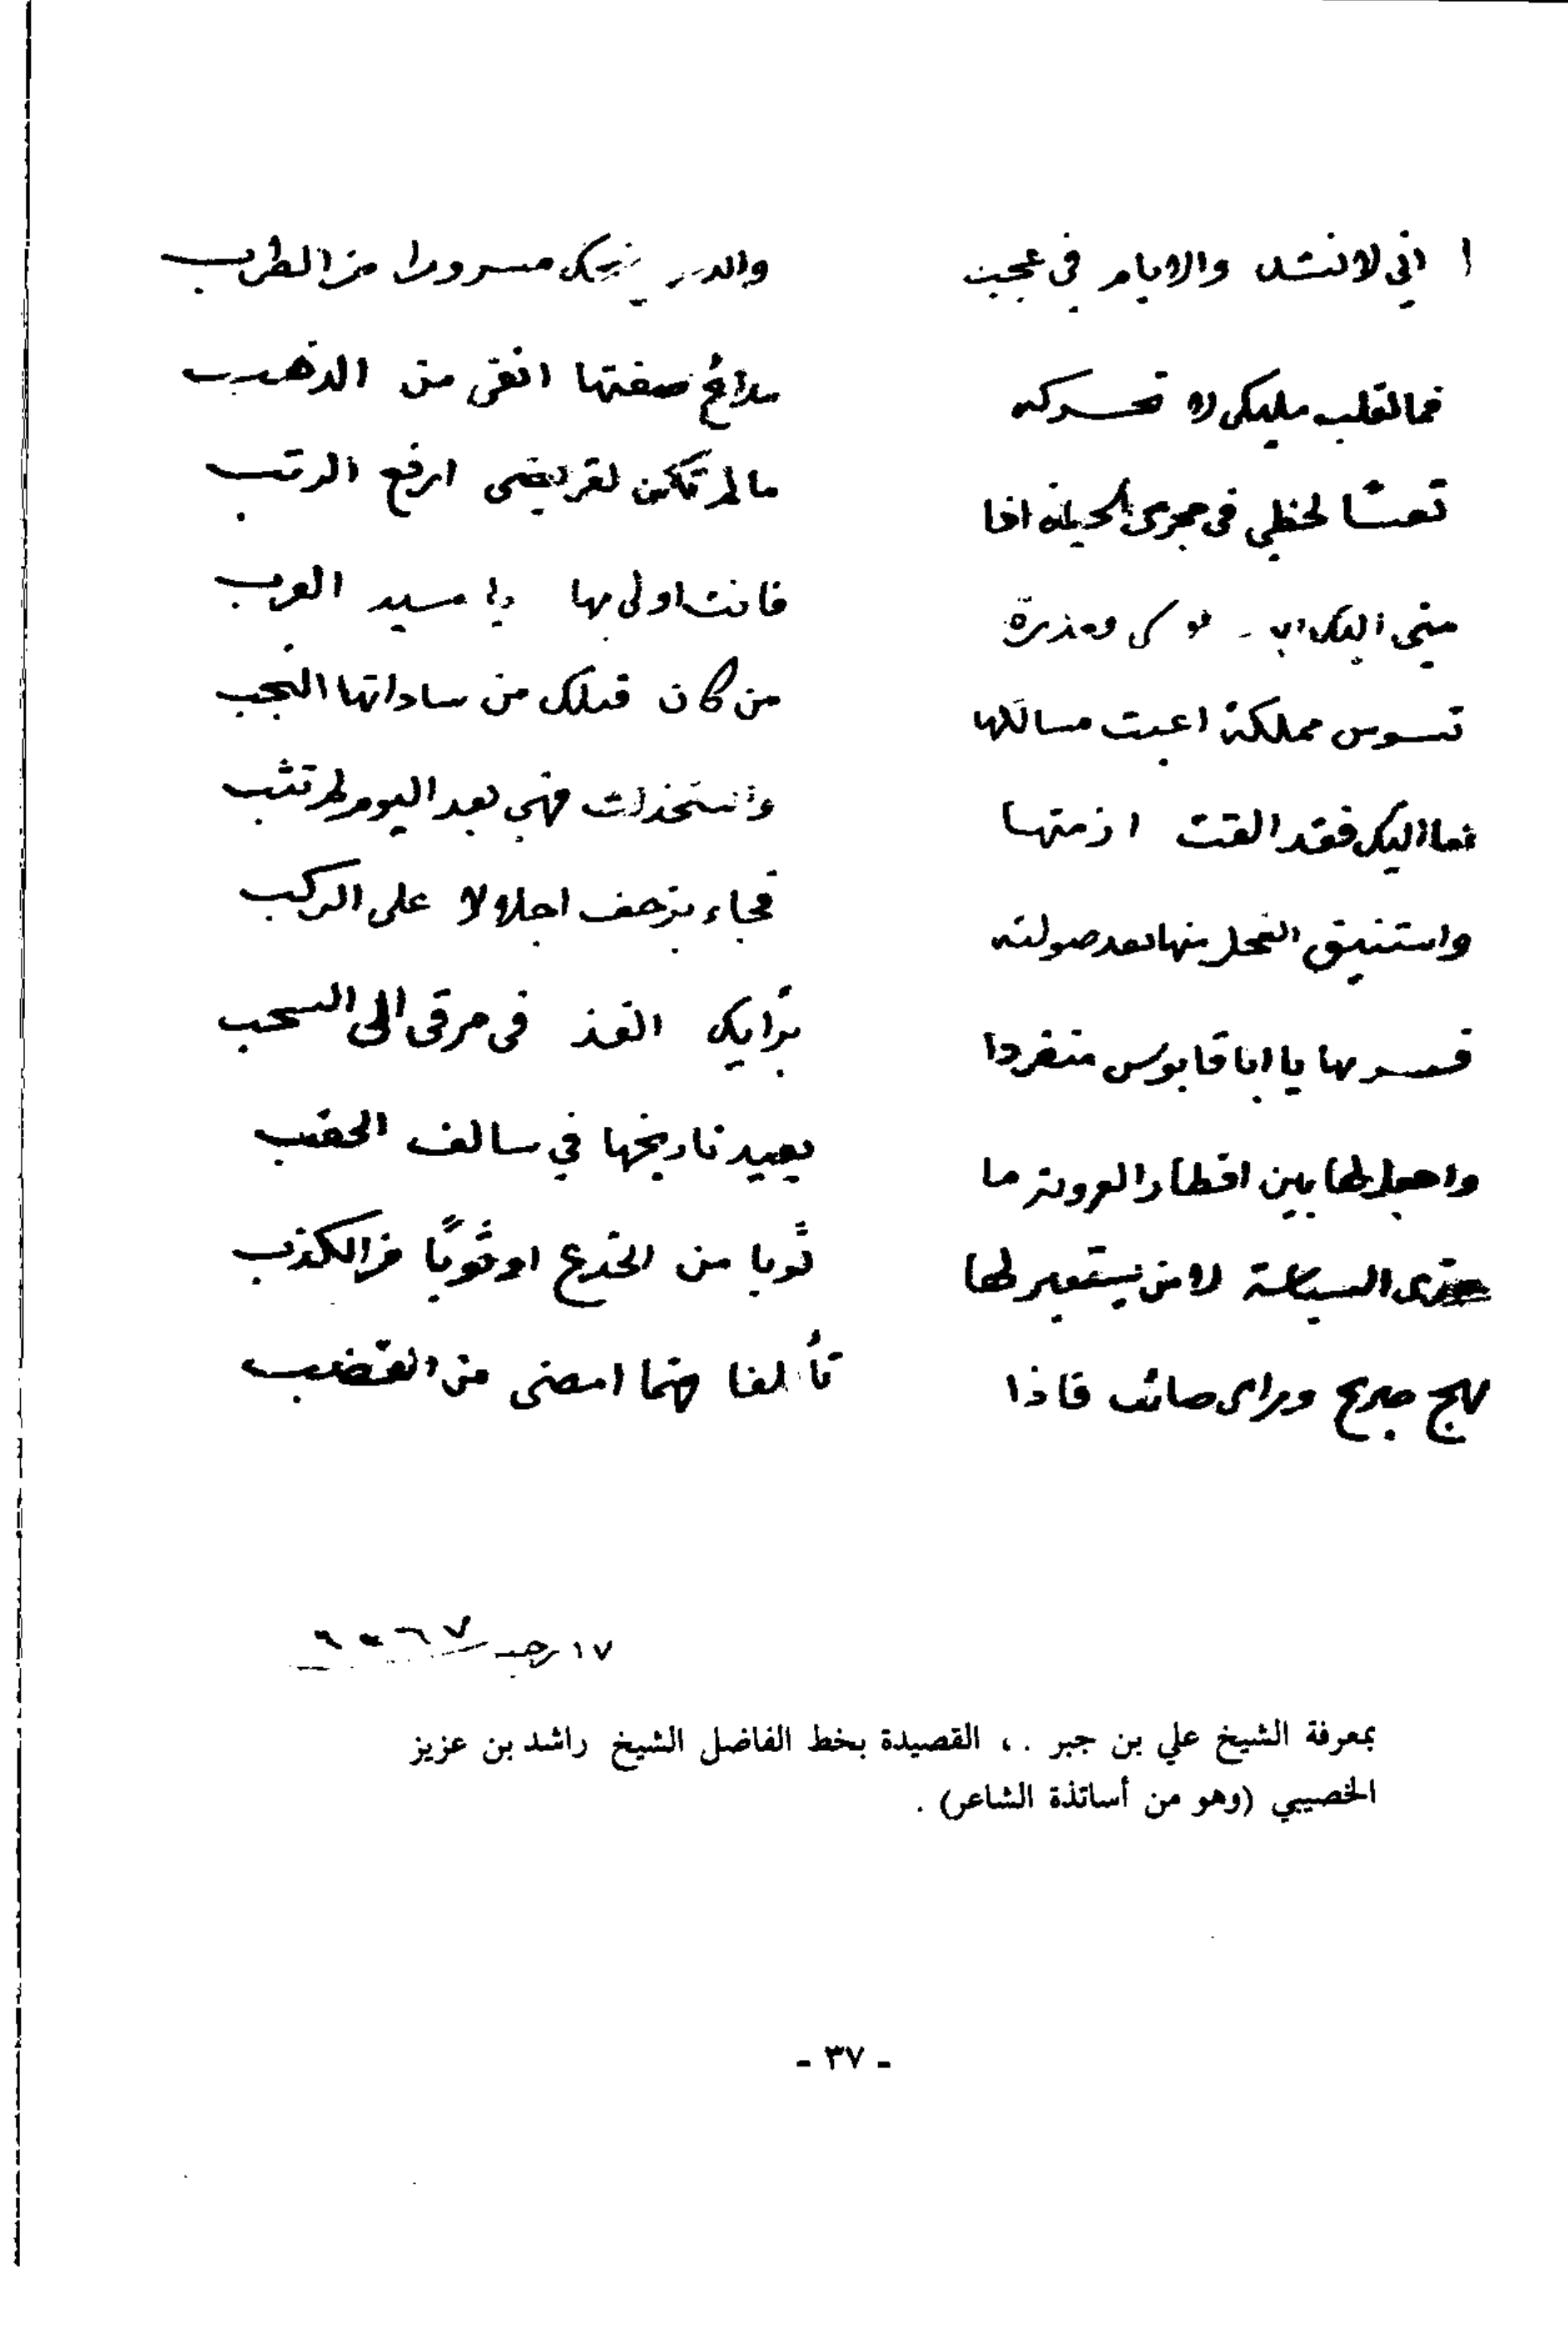 اني لانشد والايام في عجب والدهر يضحك مسرورا من الطرب
فما لقلب مليكي لا تحركه مدائح صفتها انقى من الذهب
تعسًا لحظي في مجرى الحياة اذا ما لم تكن لقريضي ارفع الرتب
مني اليك ومعذرة فانت اولى بها يا سيد العرب
تسوس مملكة اعيت مسالكها من كان قبلك من ساداتها النجب
اليك فقد القت ازمتها واستخذلت فهي بعد اليوم لم تثب
واستنيق الفحل منها بعد صولته فجاء يزحف اجلالا على الركب
فسر بها يا ابا قابوس منفردا برأيك الفذ في مرقى الى السحب
واجعل لها بين اقطار العروبة ما يعيد تاريخها في سالف الحقب
السياسة لا من يستعير لها ثوبا من الخدع او ثوبًا من الكذب
نهج صريح وراي صائب فاذا تألفا فهما امضى من القضب
١٧ رجب
بمعرفة الشيخ علي بن جبر . ، القصيدة بخط الفاضل الشيخ راشد بن عزيز
الخصيبي (وهو من أساتذة الشاعر) .
- ٣٧ -